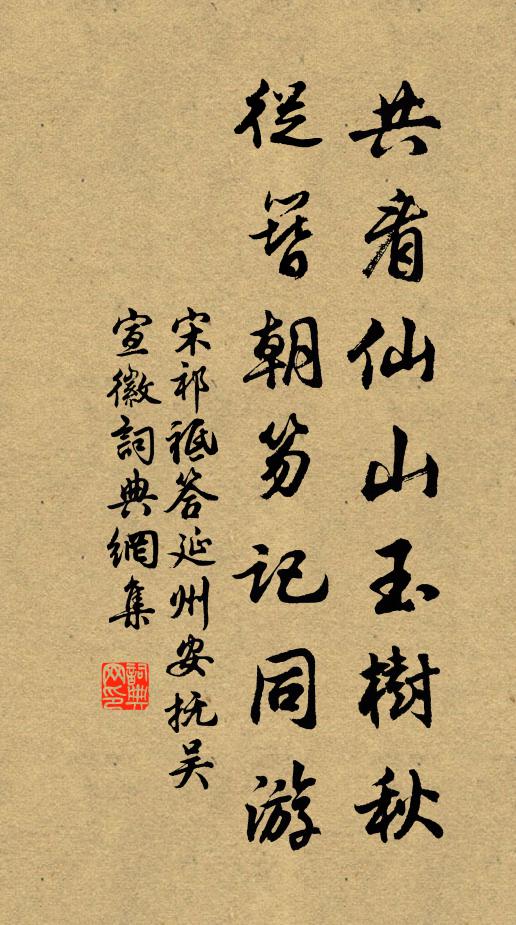 共看仙山玉樹秋
從簪朝笏記同游
宋祁祗答延州安抚吴
宣徽詞典網集
詞典
网印